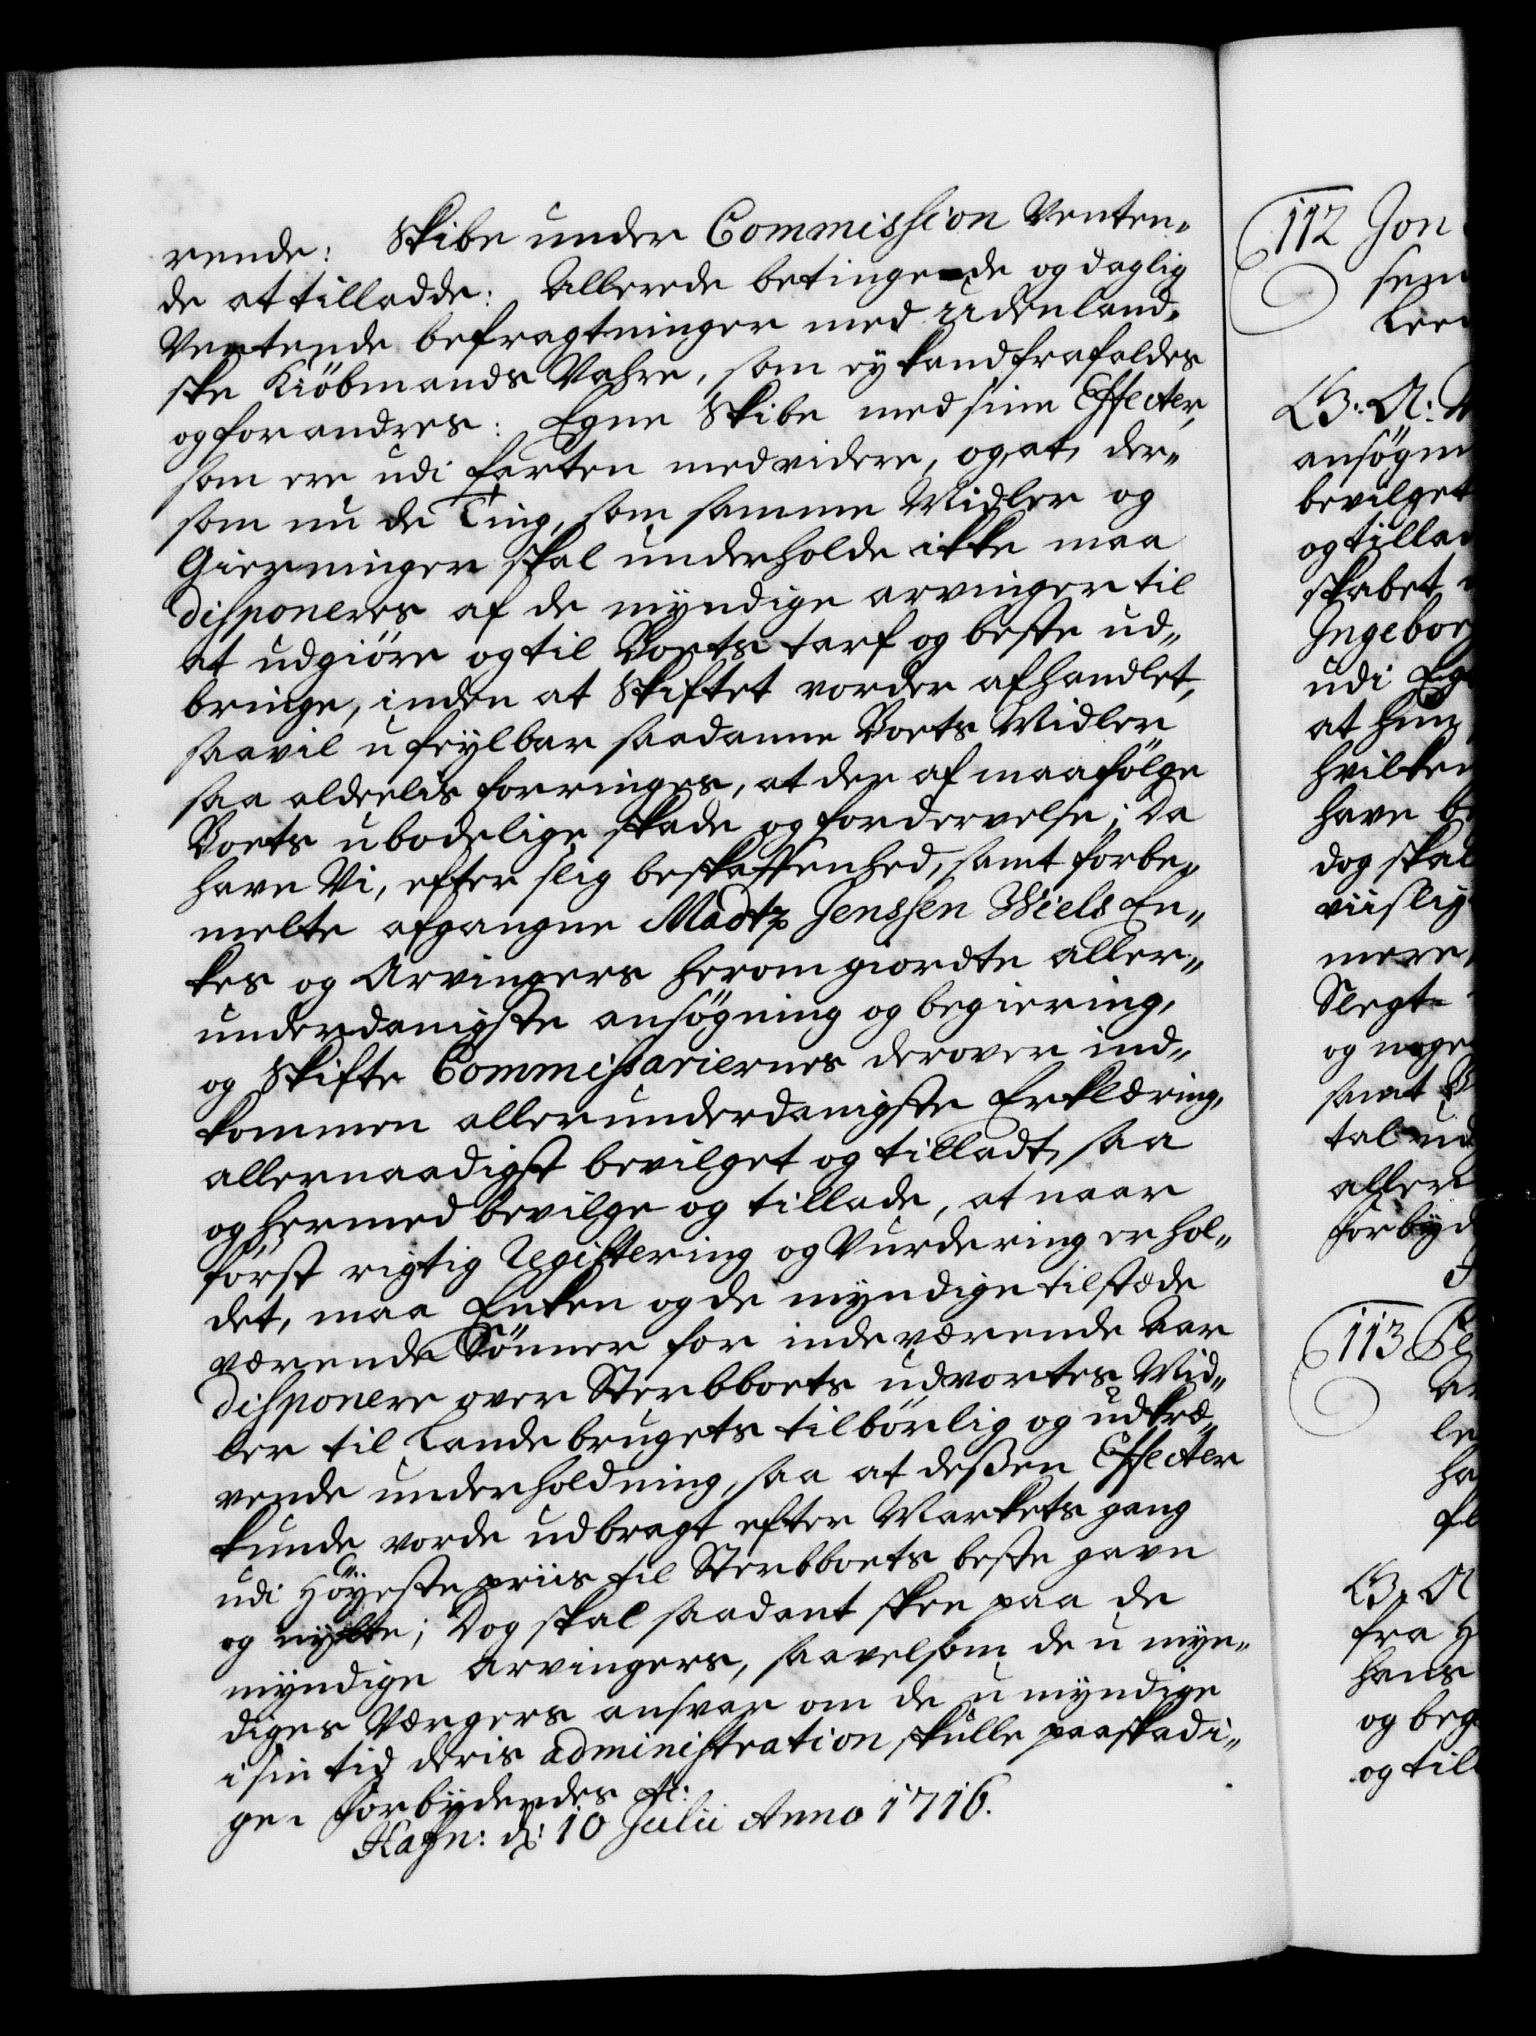 rende: Skibe under Commission Venten„
de at tilladde: Allerede betingende og daglig
Ventende befragtninger med Udenland„
ske Kiöbmands Vahre, som ey kand frafaldes
og forandres: Egne Skibe med sine Effecter,
som ere udi farten med videre, og at, der„
som nu de Ting, som samme Midler og
Gierninger skal underholde ikke maa
disponeres af de myndige arvinger til
at udgiöre og til Boets tarf og beste ud„
bringe, inden at Skiftet vorder afhandlet,
saa vil ufeylbar saadanne Boets Midler
saa aldeelis forringes, at der af maa fölge
Boets ubodelige skade og fordervelse; Da
have Vi, efter slig beskaffenhed, samt forbe„
melte afgangne Madtz Jenssen Wiels En„
kes og Arvingers herom giordte aller„
underdanigste ansögning og begiering,
og Skifte Commissariernes derover ind„
kommen allerunderdanigste Erklæring,
allernaadigst bevilget og tilladt, saa
og hermed bevilge og tillade, at naar
först rigtig Registering og Vurdering er hol„
det, maa Enken og de myndige tilstæde
værende Sönner for indeværende Aar
disponere over Sterbboets udvortes Mid„
ler til Landebrugets tilbörlig og udkræ„
vende underholdning, saa at dessen Effecter
kunde vorde udbragt efter Markets gang
udi Höyeste priis til Sterbboets beste gavn
og nytte; Dog skal saadant skee paa de
myndige Arvingers, saavelsom de u myn„
diges Værgers ansvar om de u myndige
i sin tid deris administration skulle paaskadi„
ge. Forbydendes etc:
Hafn: d: 10 Julii Anno 1716.
112 Jon
sen
B: A:
ansögn
bevilget
og tillad
skabet
Ingebor
udi
at hun
hvilken
have
dog skal
viislig
mere
Slegt
og noge
samt
tal ud
aller
forbyd
113
B: A
fra
hans
og beg
og till